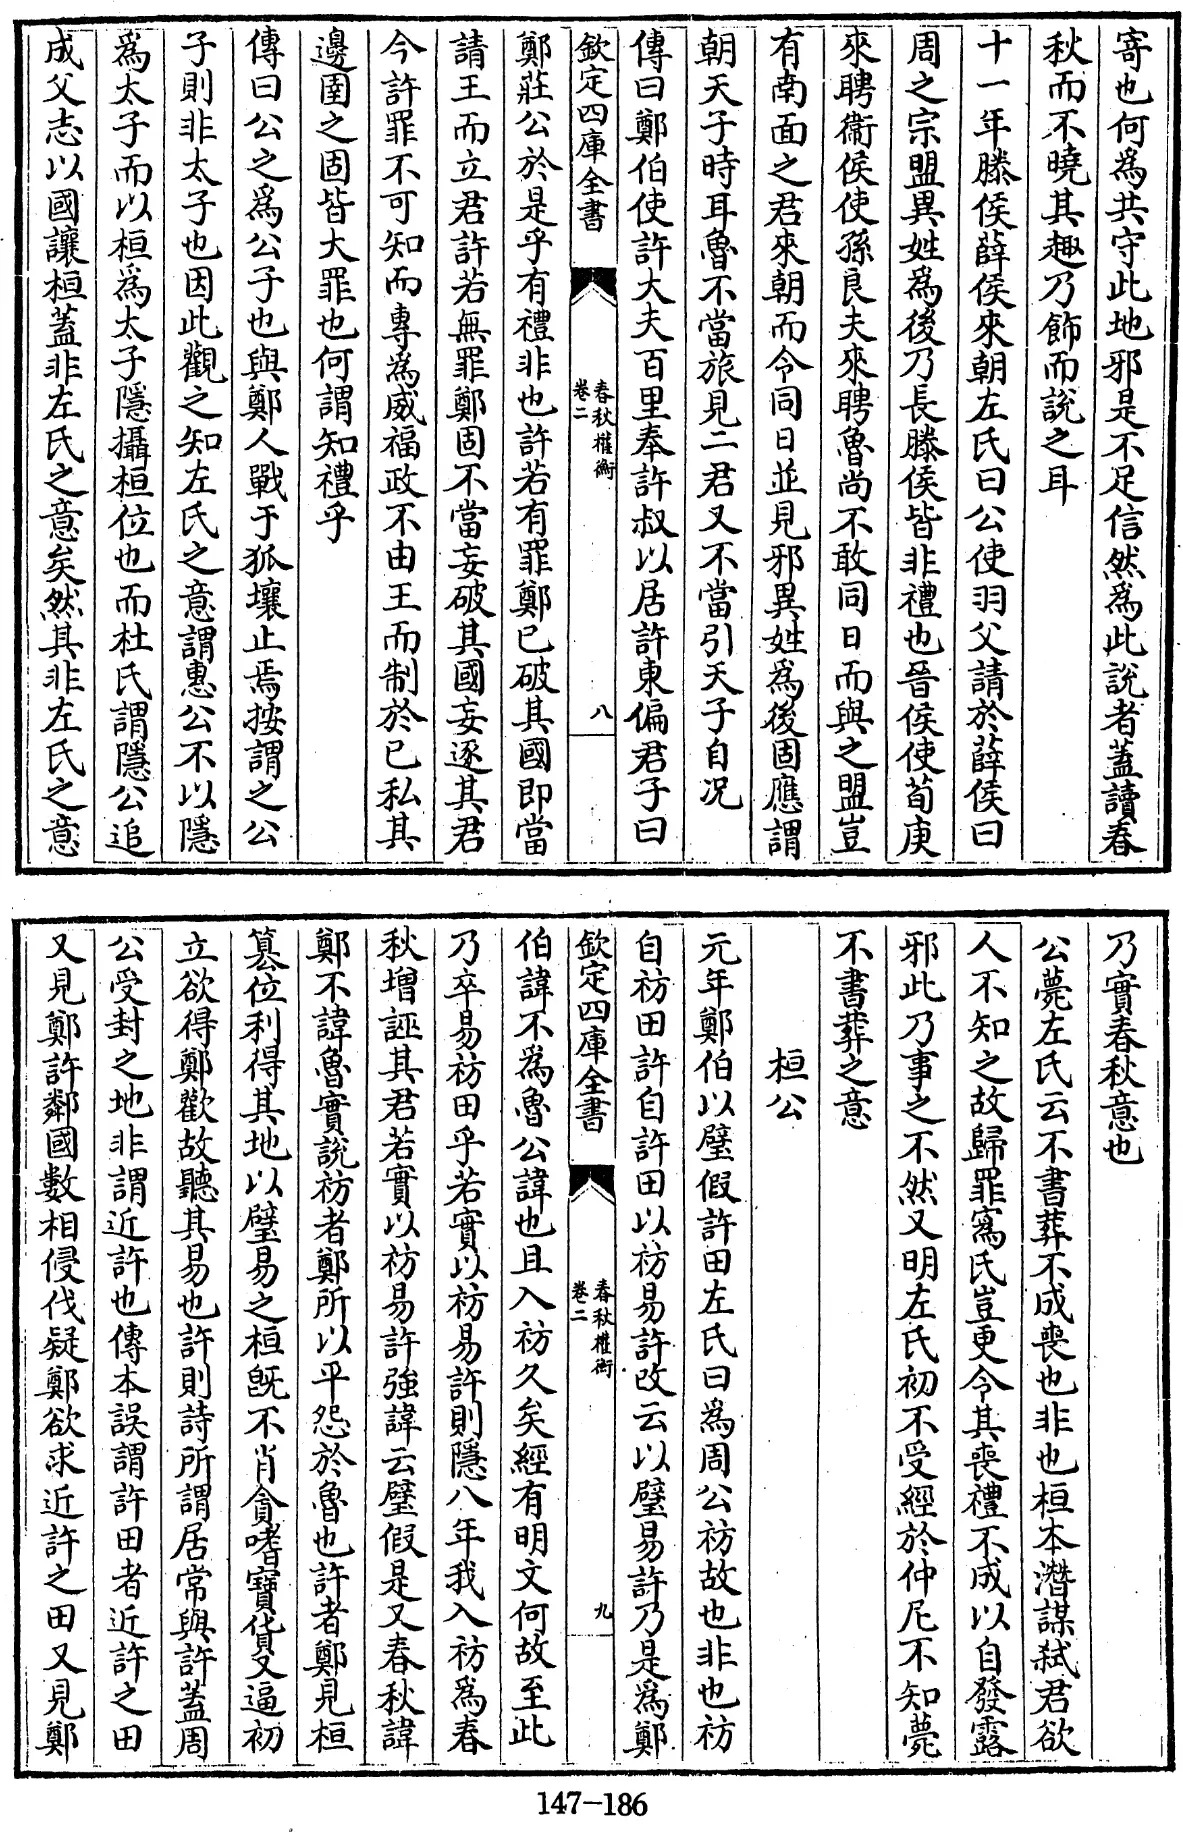 寄也何為共守此地邪是不足信然為此説者蓋讀春
秋而不曉其趣乃飾而説之耳
十一年滕侯薛侯來朝左氏曰公使羽父請於薛侯曰
周之宗盟異姓為後乃長滕侯皆非禮也晉侯使荀庚
來聘衞侯使孫良夫來聘魯尚不敢同日而與之盟豈
有南面之君來朝而令同日並見邪異姓為後固應謂
朝天子時耳魯不當旅見二君又不當引天子自况
傳曰鄭伯使許大夫百里奉許叔以居許東偏君子曰
欽定四庫全書
春秋權衡
卷二
八
鄭莊公於是乎有禮非也許若有罪鄭已破其國即當
請王而立君許若無罪鄭固不當妄破其國妄逐其君
今許罪不可知而專為威福政不由王而制於已私其
邊圉之固皆大罪也何謂知禮乎
傳曰公之為公子也與鄭人戰于狐壤止焉按謂之公
子則非太子也因此觀之知左氏之意謂惠公不以隱
為太子而以桓為太子隱攝桓位也而杜氏謂隱公追
成父志以國讓桓蓋非左氏之意矣然其非左氏之意
乃實春秋意也
公薨左氏云不書葬不成喪也非也桓本潛謀弑君欲
人不知之故歸罪寪氏豈更令其喪禮不成以自發露
邪此乃事之不然又明左氏初不受經於仲尼不知薨
不書葬之意
桓公
元年鄭伯以璧假許田左氏曰為周公祊故也非也祊
自祊田許自許田以祊易許改云以璧易許乃是為鄭
欽定四庫全書
春秋權衡
卷二
九
伯諱不為魯公諱也且入祊久矣經有明文何故至此
乃卒易祊田乎若實以祊易許則隱八年我入祊為春
秋增誣其君若實以祊易許強諱云璧假是又春秋諱
鄭不諱魯實説祊者鄭所以平怨於魯也許者鄭見桓
簒位利得其地以璧易之桓既不肖貪嗜寶貨又逼初
立欲得鄭歡故聽其易也許則詩所謂居常與許蓋周
公受封之地非謂近許也傳本誤謂許田者近許之田
又見鄭許鄰國數相侵伐疑鄭欲求近許之田又見鄭
147-186